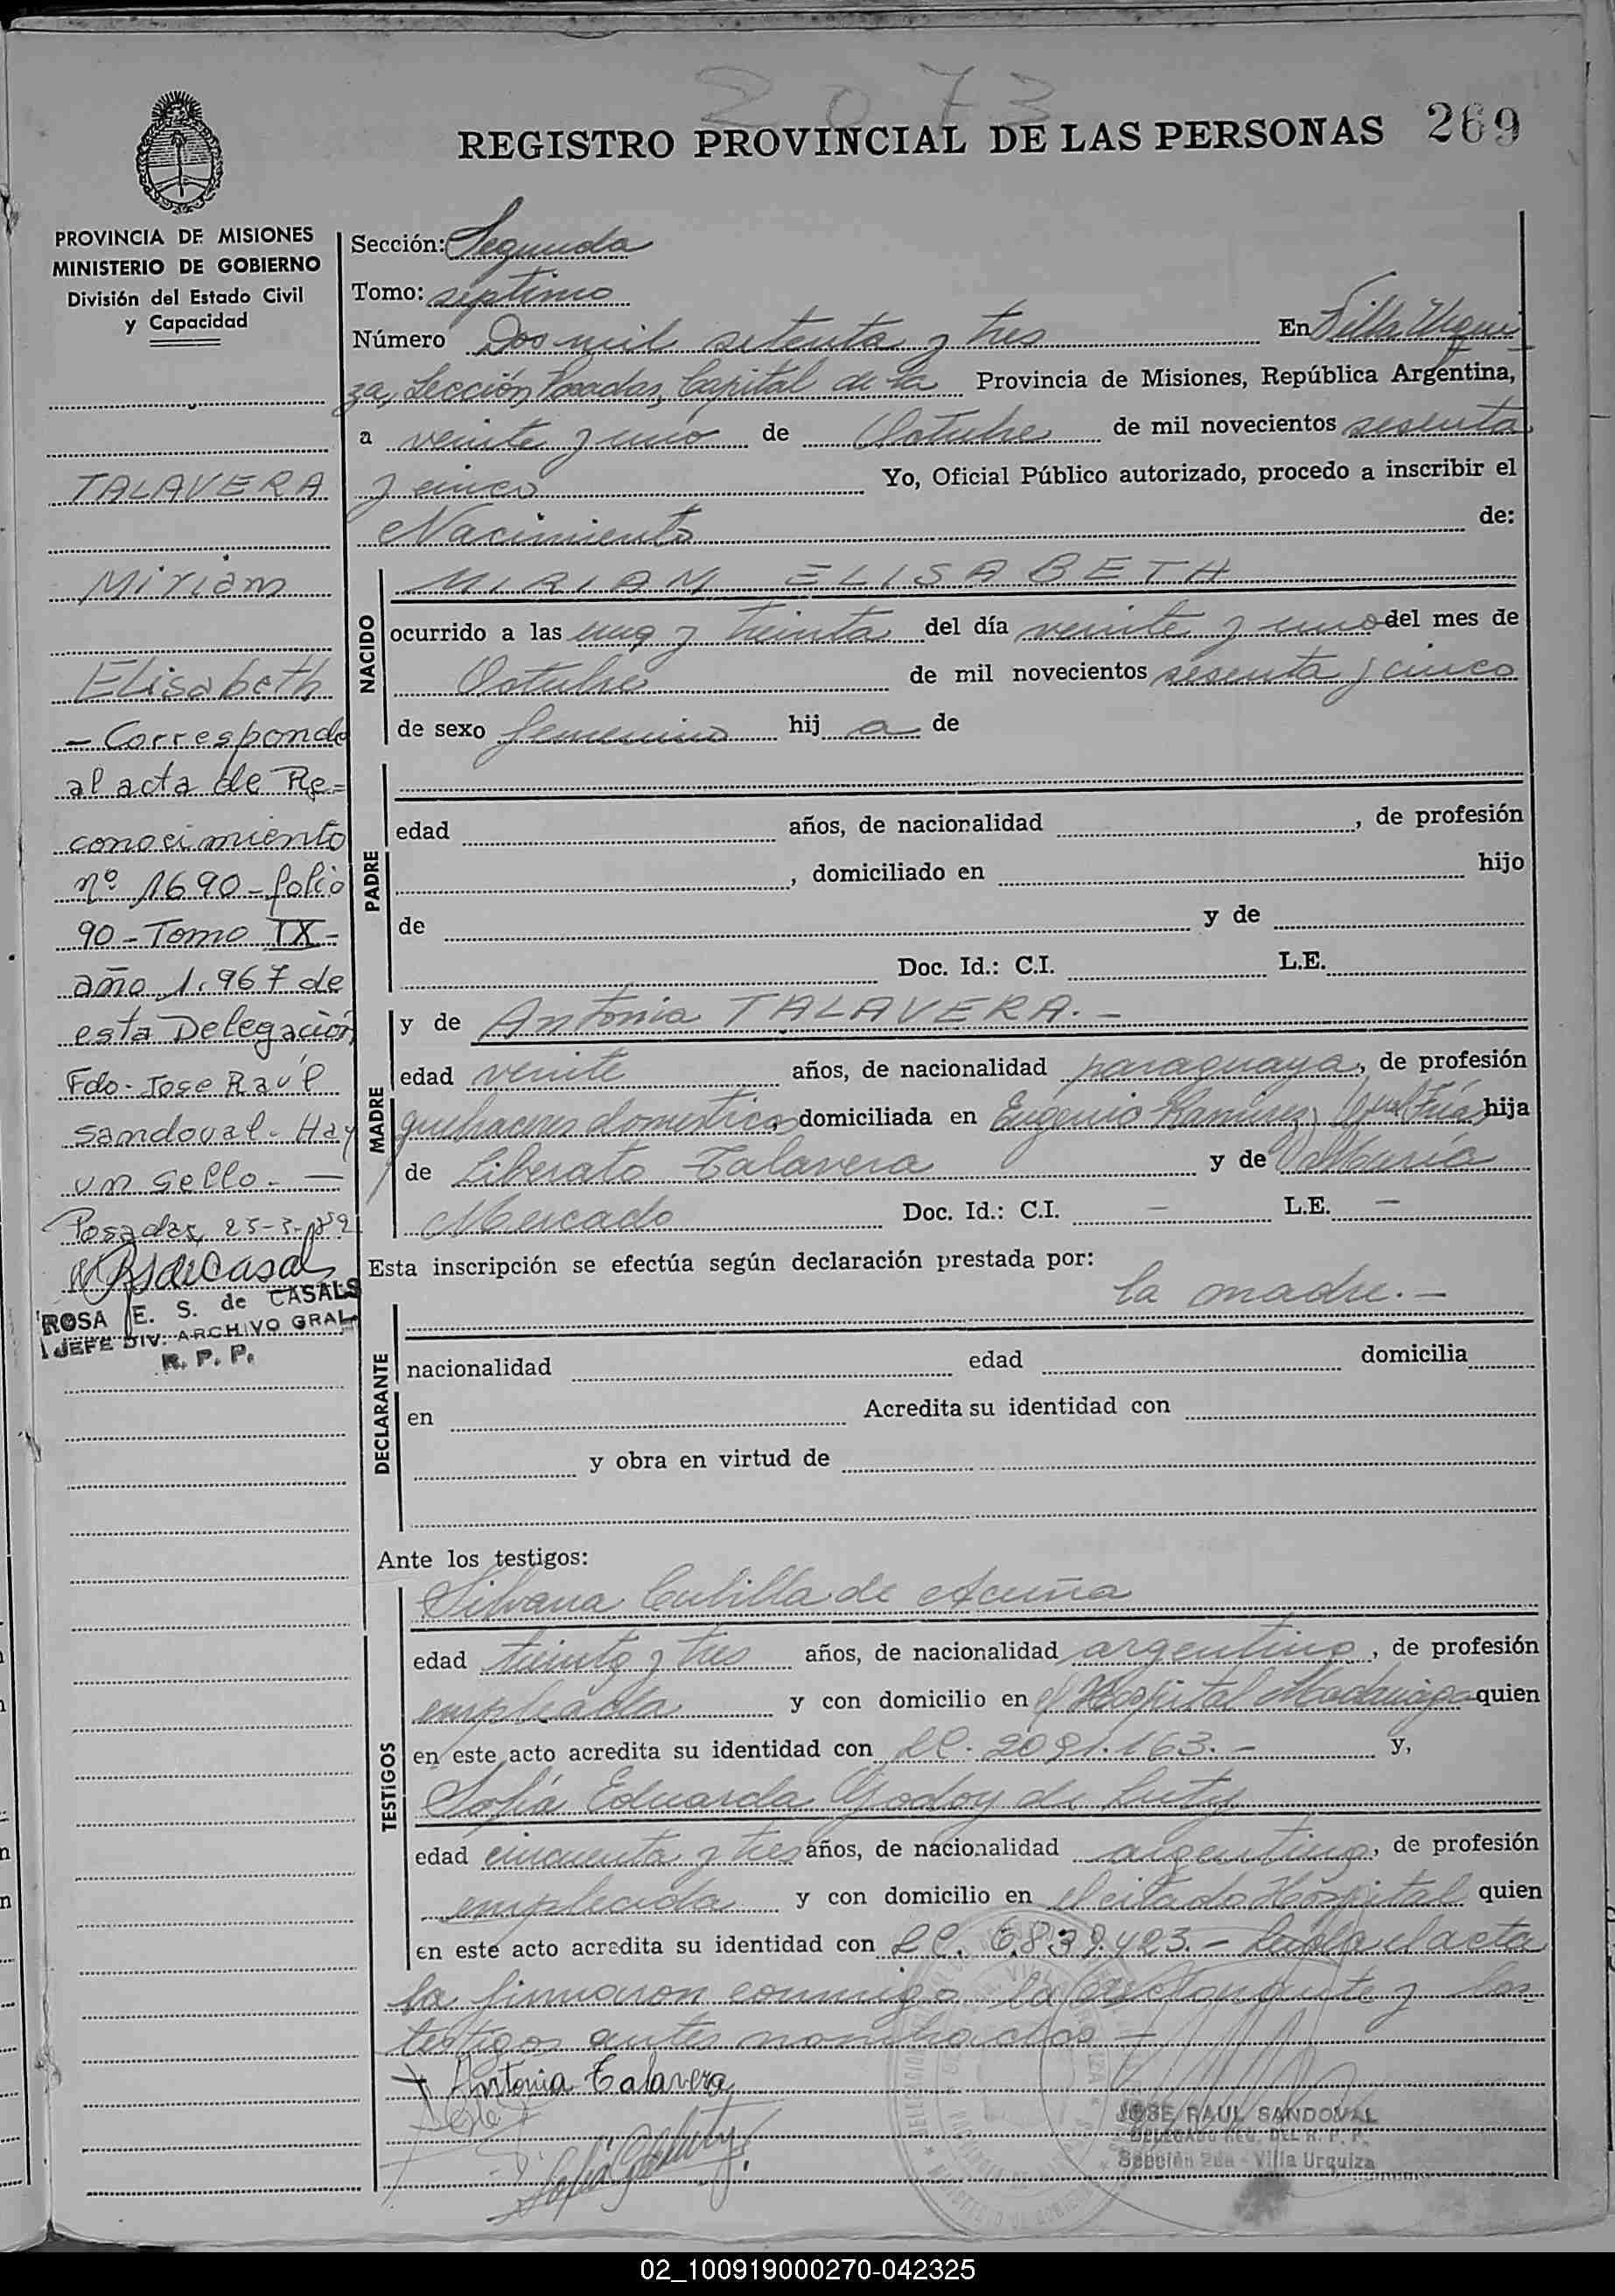 2073
REGISTRO PROVINCIAL DE LAS PERSONAS 269
PROVINCIA DE MISIONES
MINISTERIO DE GOBIERNO
División del Estado Civil
y Capacidad
TALAVERA
Miriam
Elisabeth
- Corresponde
al acta de Re=
conocimiento
nº 1690 - folio
90 - Tomo IX -
año 1.967 de
esta Delegación
Fdo. Jose Raúl
Sandoval - Hay
un sello. —
Posadas, 25-3-
ROSA E. S. de CASALS
JEFE DIV. ARCHIVO GRAL.
R. P. P.
Sección: Segunda
Tomo: septimo
Número Dos mil setenta y tres En Villa Urqui
za, Sección Posadas, Capital de la Provincia de Misiones, República Argentina,
a veinte y uno de Octubre de mil novecientos sesenta
y cinco Yo, Oficial Público autorizado, procedo a inscribir el
Nacimiento de:
NACIDO
MIRIAM ELISABETH
ocurrido a las una y treinta del día veinte y uno del mes de
Octubre de mil novecientos sesenta y cinco
de sexo femenino hij a de
PADRE
edad años, de nacionalidad , de profesión
, domiciliado en hijo
de y de
Doc. Id.: C.I. L.E.
MADRE
y de Antonia TALAVERA. -
edad veinte años, de nacionalidad paraguaya, de profesión
quehaceres domesticos domiciliada en Eugenio Ramirez hija
de Liberato Talavera y de María
Mercado Doc. Id.: C.I. - L.E. -
Esta inscripción se efectúa según declaración prestada por:
la madre. -
DECLARANTE
nacionalidad edad domicilia
en Acredita su identidad con
y obra en virtud de
Ante los testigos:
TESTIGOS
Silvana Cubilla de Acuña
edad treinta y tres años, de nacionalidad argentina, de profesión
empleada y con domicilio en el Hospital Madariaga quien
en este acto acredita su identidad con LC. 2091.163. - y,
Sofía Eduarda Godoy de Luty
edad cincuenta y tres años, de nacionalidad argentina, de profesión
empleada y con domicilio en el citado Hospital quien
en este acto acredita su identidad con LC. 6.839.423. - Leída el acta
la firmaron conmigo la declarante y los
testigos antes nombrados -
Antonia Talavera
JOSE RAUL SANDOVAL
DELEGADO REG. DEL R. P. P.
Sección 2da - Villa Urquiza
02_100919000270-042325